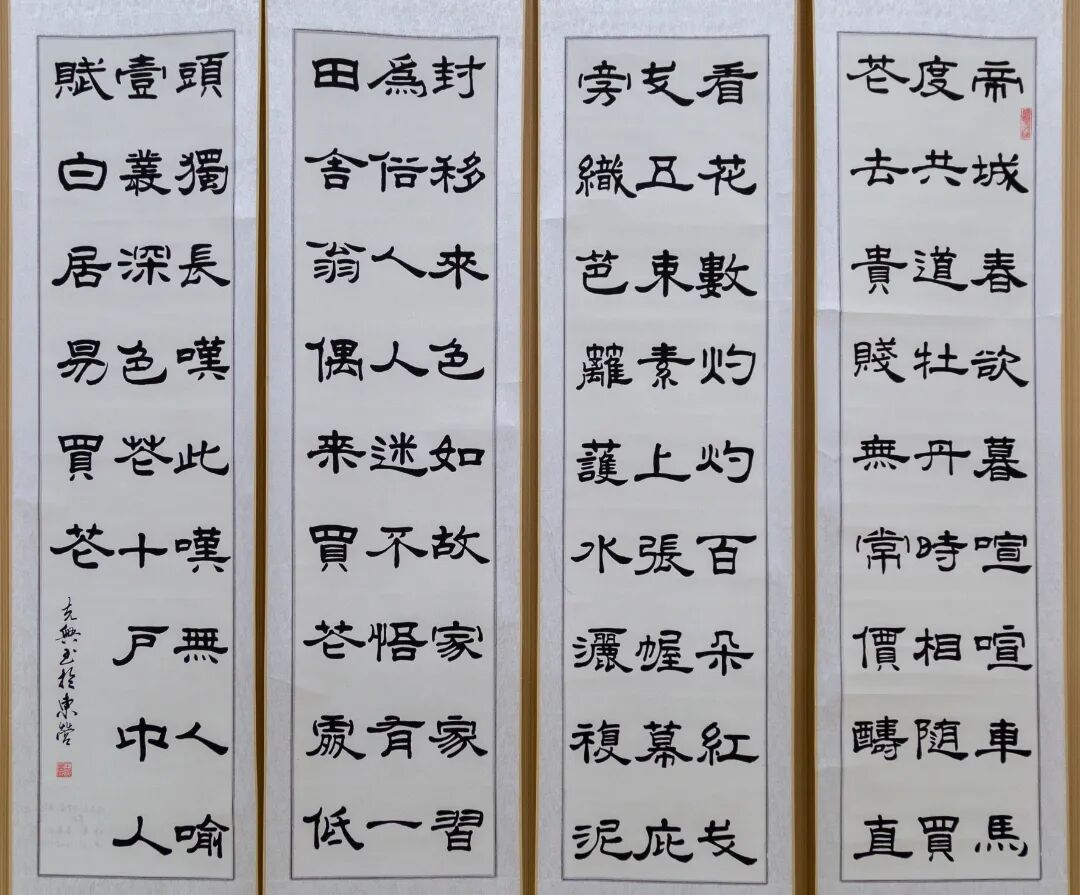 帝城春欲暮喧喧車馬
度共道牡丹時相随買
花去貴賤無常價醻直
看花數灼灼百朵紅戋
戋五束素上張幄幕庇
旁織芭蘺護水灑複泥
封移來色如故家家習
爲俗人人迷不悟有一
田舍翁偶来買花處低
頭獨長嘆此嘆無人喻
壹叢深色花十戶中人
賦白居易買花
克書於東營